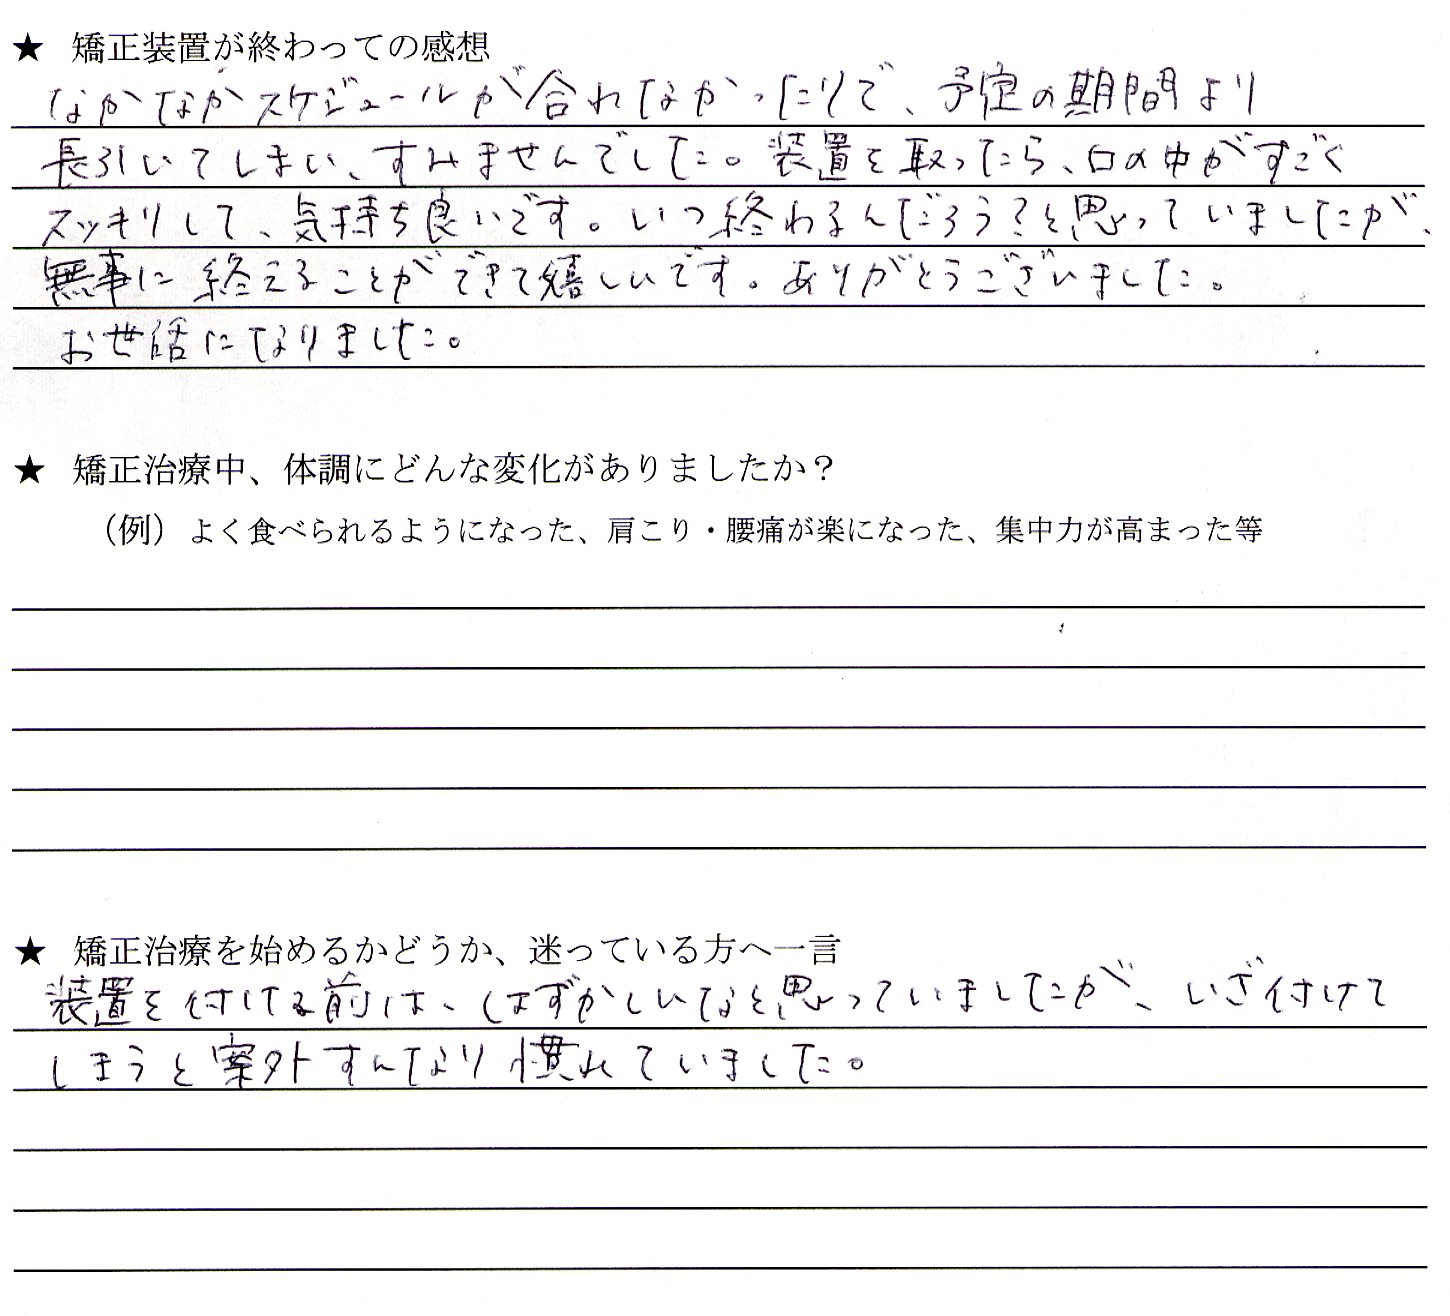 ★ 矯正装置が終わっての感想
なかなかスケジュールが合れなかったりで、予定の期間より
長引いてしまい、すみませんでした。装置を取ったら、口の中がすごく
スッキリして、気持ち良いです。いつ終わるんだろう?と思っていましたが、
無事に終えることができて嬉しいです。ありがとうございました。
お世話になりました。
★ 矯正治療中、体調にどんな変化がありましたか?
（例）よく食べられるようになった、肩こり・腰痛が楽になった、集中力が高まった等
★ 矯正治療を始めるかどうか、迷っている方へ一言
装置を付ける前は、はずかしいなと思っていましたが、いざ付けて
しまうと案外すんなり慣れていました。